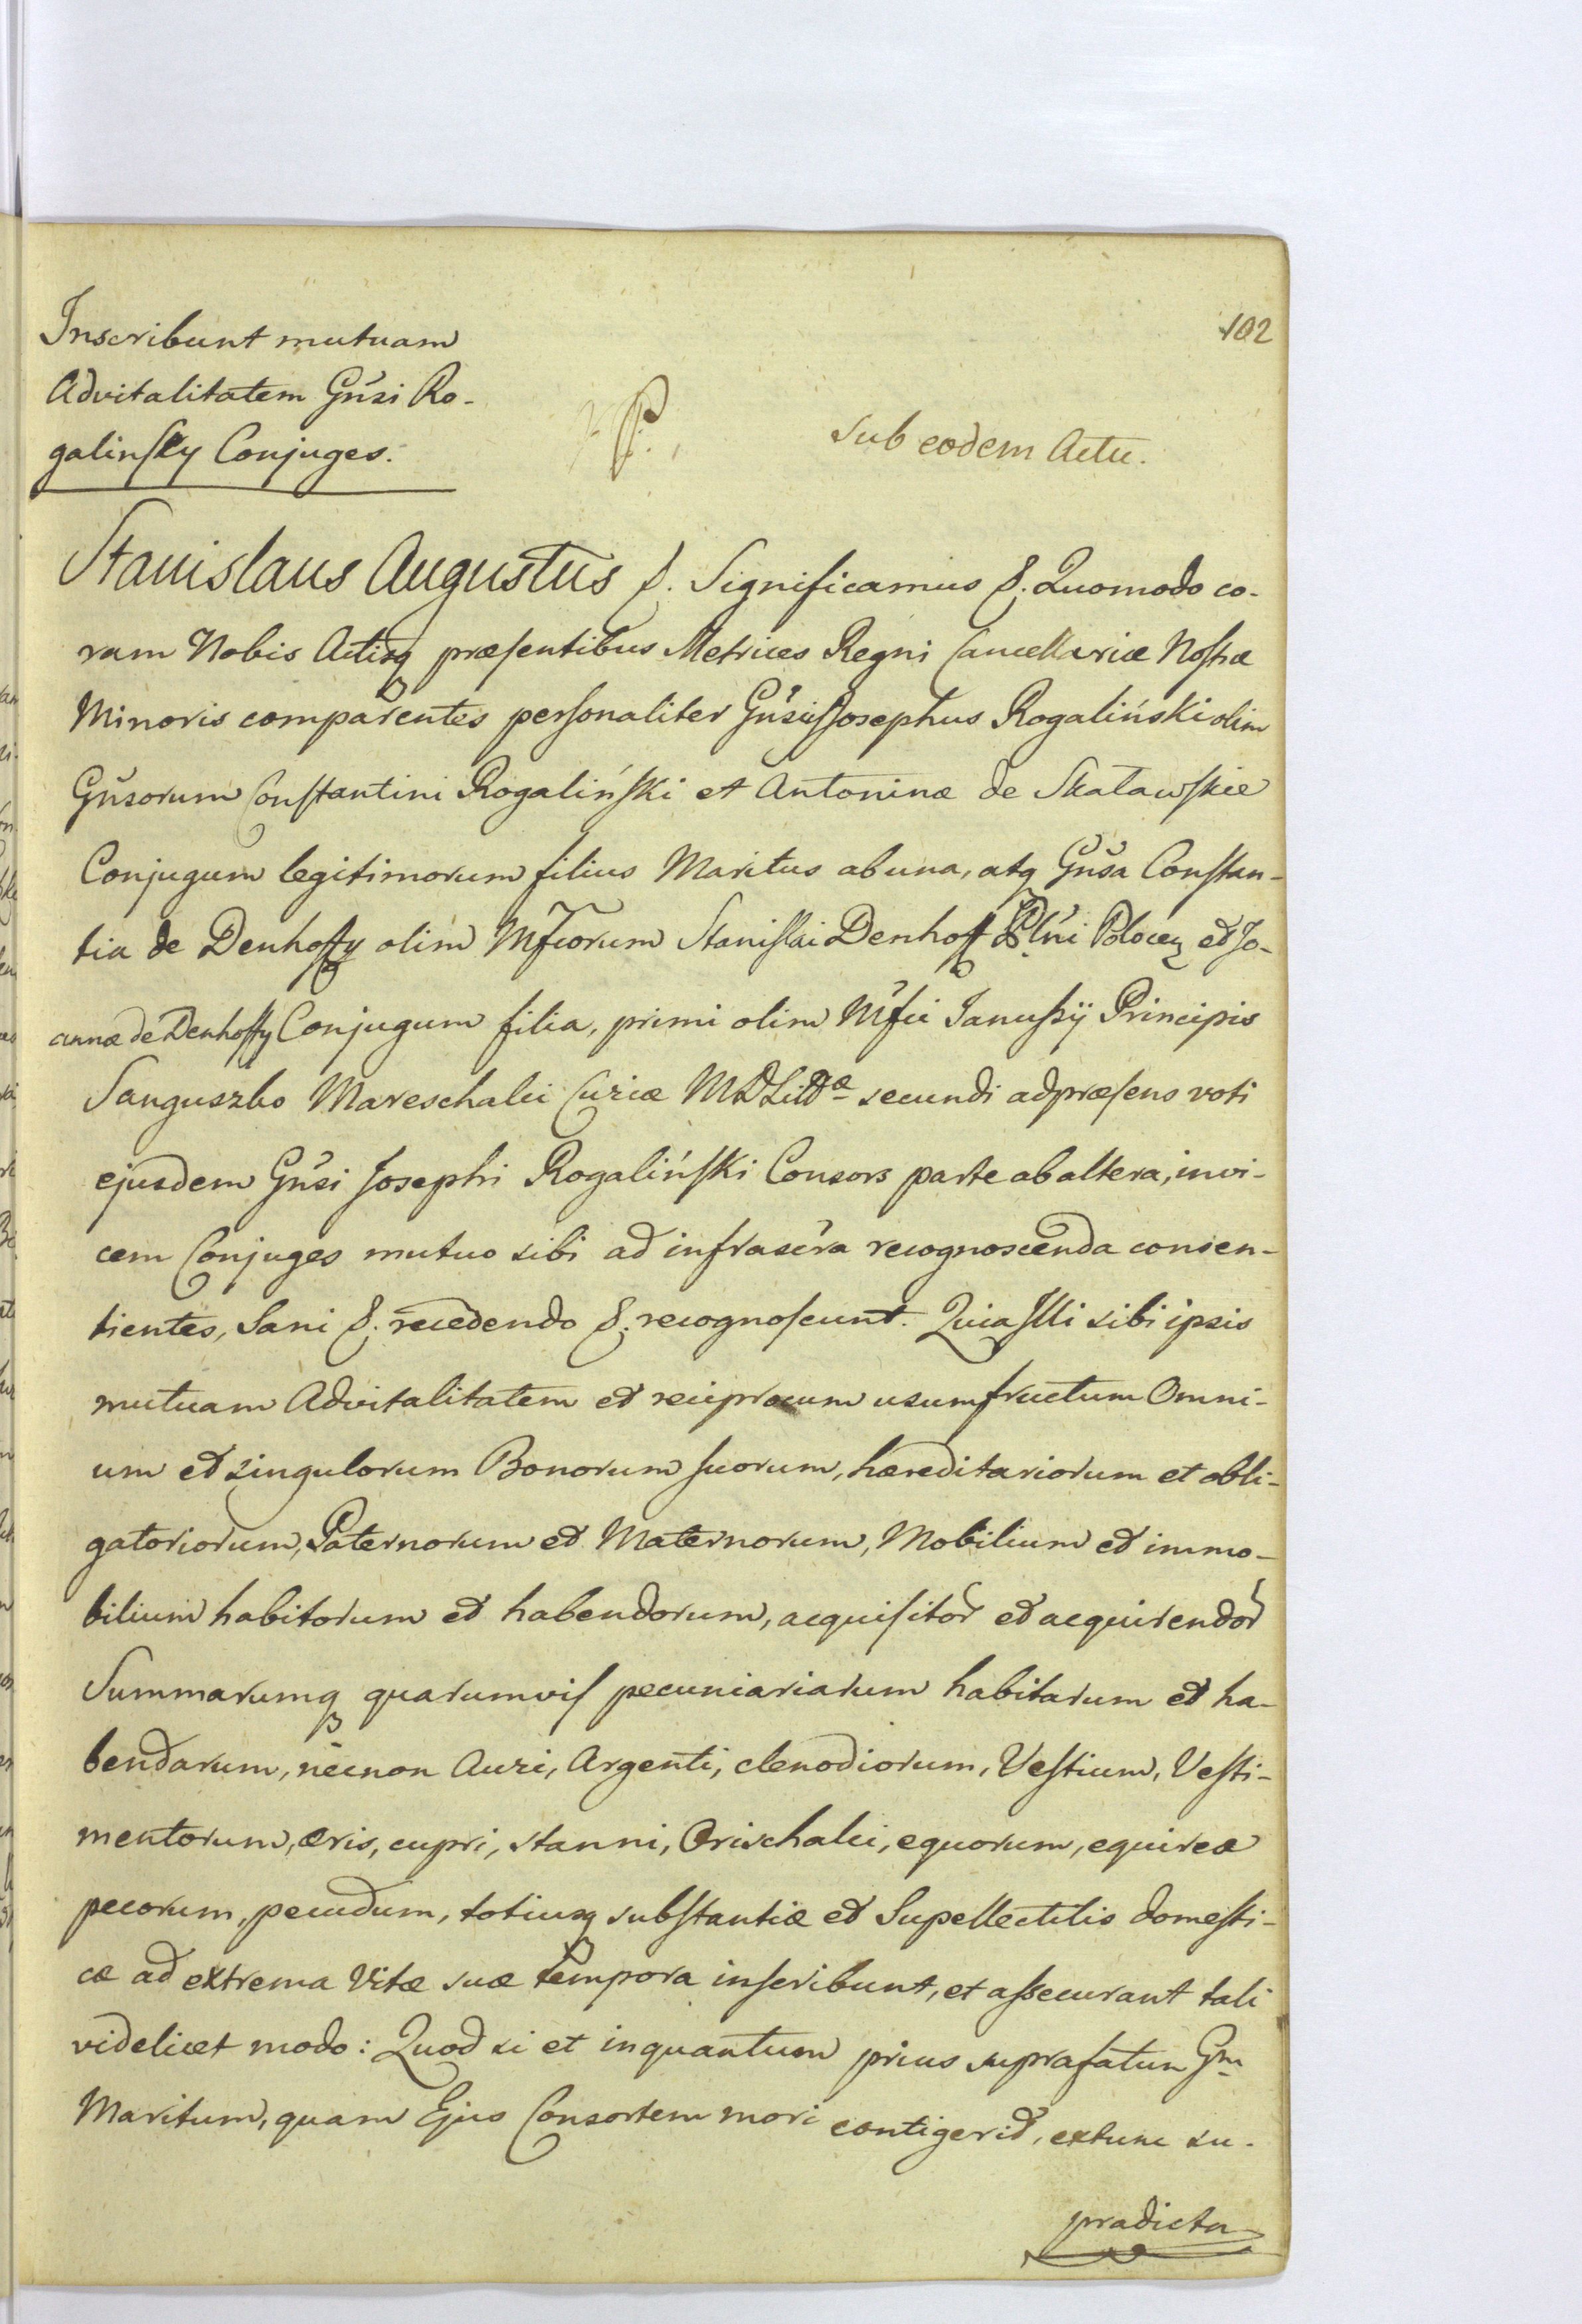 102
Inscribunt mutuam
Advitalitatem Gnsi Ro-
galinsky Conjuges.
Sub eodem Actu.
Stanislaus Augustus &. Significamus &. Quomodo co-
ram Nobis Actisq præsentibus Metrices Regni Cancellariæ Nostræ
Minoris comparentes personaliter Gnsus Josephus Rogaliński olim
Gnsorum Constantini Rogaliński et Antoninæ de Skaławskie
Conjugum legitimorum filius Maritus ab una, atq Gnsa Constan-
tia de Denhoffy olim Mfcorum Stanislai Denhoff Plni Polocen et Jo-
annæ de Denhoffy Conjugum filia, primi olim Mfci Janussij Principis
Sanguszko Mareschalci Curiæ MDLittæ secundi ad præsens voti
ejusdem Gnsi Josephi Rogaliński Consors parte ab altera, invi-
cem Conjuges mutuo sibi ad infrascra recognoscenda consen-
tientes, Sani &. recedendo &. recognoscunt. Quia Illi sibi ipsis
mutuam Advitalitatem et reciprocum usumfructum Omni-
um et singulorum Bonorum suorum, hæreditariorum et obli-
gatoriorum, Paternorum et Maternorum, Mobilium et immo-
bilium habitorum et habendorum, acquisitor et acquirendor
Summarumq quarumvis pecuniariarum habitarum et ha-
bendarum, necnon Auri, Argenti, clenodiorum, Vestium, Vesti-
mentorum, æris, cupri, stanni, Orischalci, equorum, equireæ
pecorum, pecudum, totiusq substantiæ et Supellectilis domesti-
cæ ad extrema Vitæ suæ tempora inscribunt, et assecurant tali
videlicet modo: Quod si et inquantum prius suprafatum Gm
Maritum, quam Ejus Consortem mori contigerit, extunc su-
pradicta